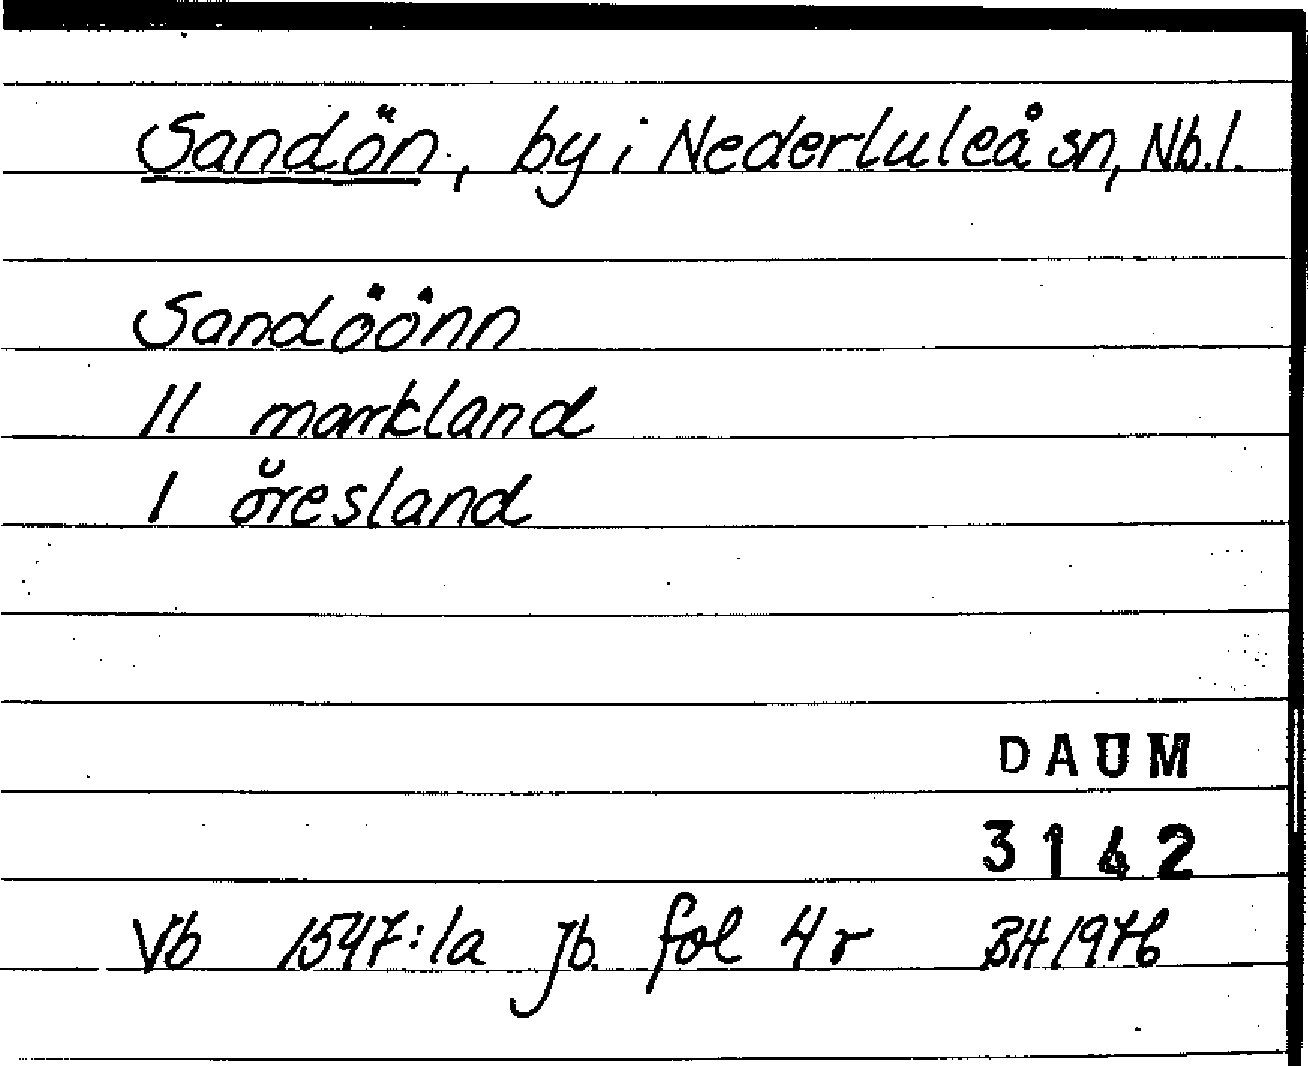 Sandön, by i Nederluleå sn, Nb.l.
Sandöönn
11 markland
1 öresland
DAUM
3142
Vb 1547:1a jb. fol 4 r BH 1976